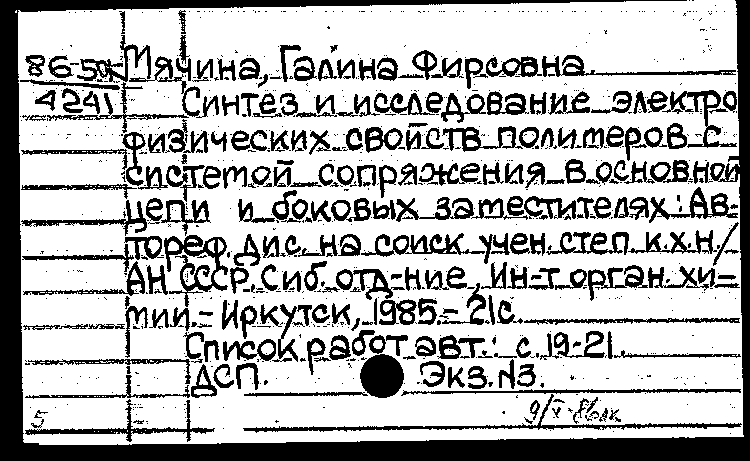 86-50к Мячина, Галина Фирсовна.
4241 Синтез и исследование электро
физических свойств полимеров с
системой сопряжения в основной
цепи и боковых заместителях: Ав-
тореф. дис. на соиск. учен. степ. к.х.н./
АН СССР. Сиб. отд-ние, Ин-т орган. хи-
мии.- Иркутск, 1985.- 21с.
Список работ авт.: с. 19-21.
ДСП. Экз. N3.
5